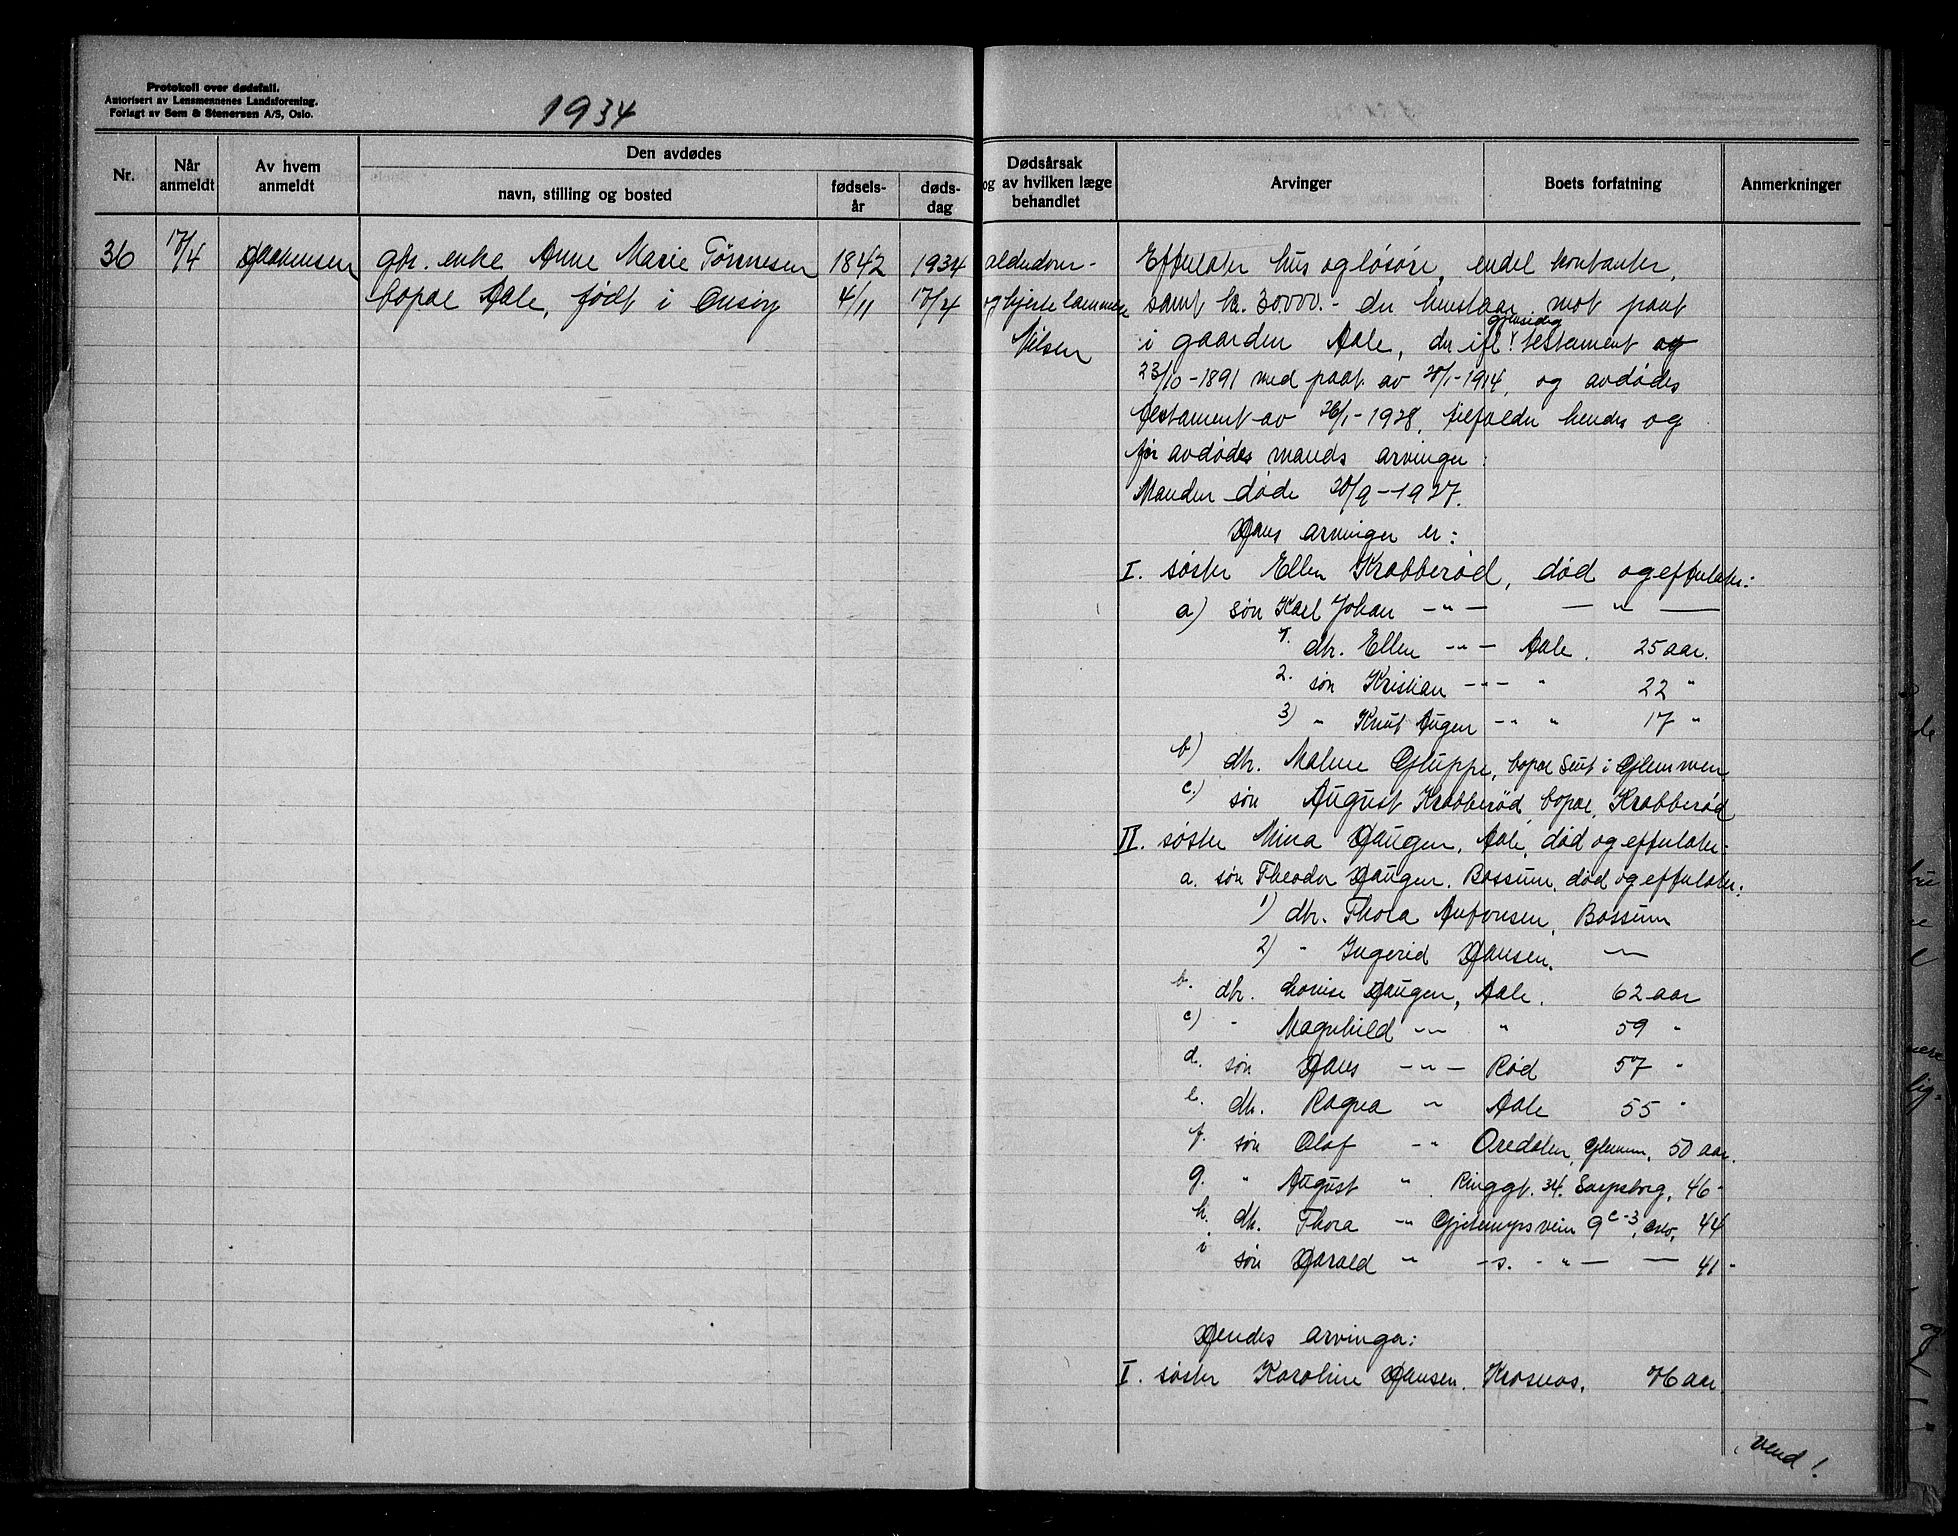 Protokoll over dødsfall.
Autorisert av Lensmennenes Landsforening.
Forlagt av Sem & Stenersen A/S, Oslo.
1934
Nr.
Når anmeldt
Av hvem anmeldt
Den avdødes
navn, stilling og bosted
fødsels-
år
døds-
dag
Dødsårsak
og av hvilken læge
behandlet
Arvinger
Boets forfatning
Anmerkninger
36 17/4 gbr. enke Anne Marie Tørnnesen 1842 1934
bopæl Aale, født i Onsøy 4/11 17/4
alderdom-
og hjertelammelse
Nilsen
Efterlater hus og løsøre, endel kontanter,
samt kr. 30000.- der henstaar mot pant
gjensidig
i gaarden Aale, der ifl. testament og
23/10-1891 med paat. av 20/1-1914, og avdødes
testament av 26/1-1928, tilfalder hendes og
før avdødes mands arvinger:
Manden døde 20/9-1927.
Hans arvinger er:
I. søster Ellen Krabberød, død og efterlater:
a) søn Karl Johan -"- — " —
1. dtr. Ellen -"- Aale. 25 aar.
2. søn Kristian -"- " 22 "
3) " Knut Augen -" " 17 "
b) dtr. Malene Gluppe, bopæl Seut i Glemmen
c.) søn August Krabberød, bopæl Krabberød
II. søster Mina Haugen, Aale, død og efterlater-
a. søn Theodor Haugen, Bossum, død og efterlater:
1) dtr. Thora Antonsen, Bossum
2) " Ingerid Hansen. —"—
b. dtr. Lovise Haugen, Aale. 62 aar
c) " Magnhild -"- " 59 "
d. søn Hans -"- Rød 57 "
e. dtr. Ragna " Aale 55 "
f. søn Olaf -" Oredalen, Glemmen, 50 aar.
g. " August " Ringgt. 34. Sarpsborg, 46 -
h. dtr. Thora -" Gjetemyrsveien 9 c-3, Oslo, 44
i søn Harald -" -s. -"- — 41 -
Hendes arvinger:
I. søster Karoline Hansen, Krosnes, 76 aar.
Vend!